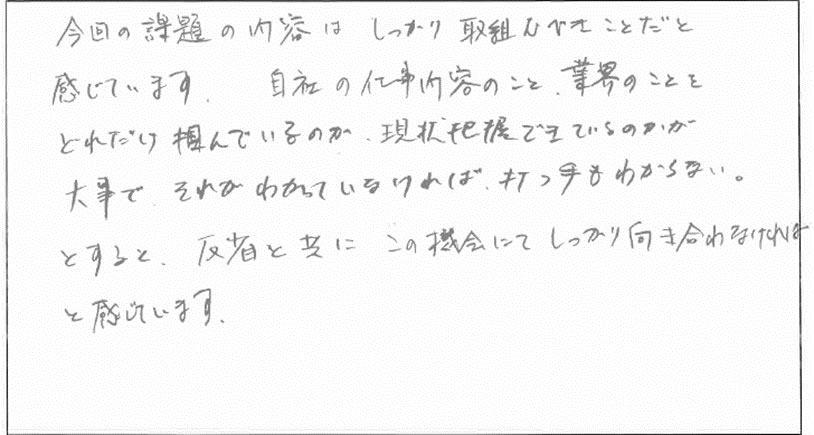 今回の課題の内容は しっかり 取組むべきことだと
感じています. 自社の仕事内容のこと、業界のことを
どれだけ掴んでいるのか、現状把握できているのかが
大事で、それがわかっていなければ、打つ手もわからない。
とすると、反省と共に この機会にて しっかり向き合わなければ
と感じています.